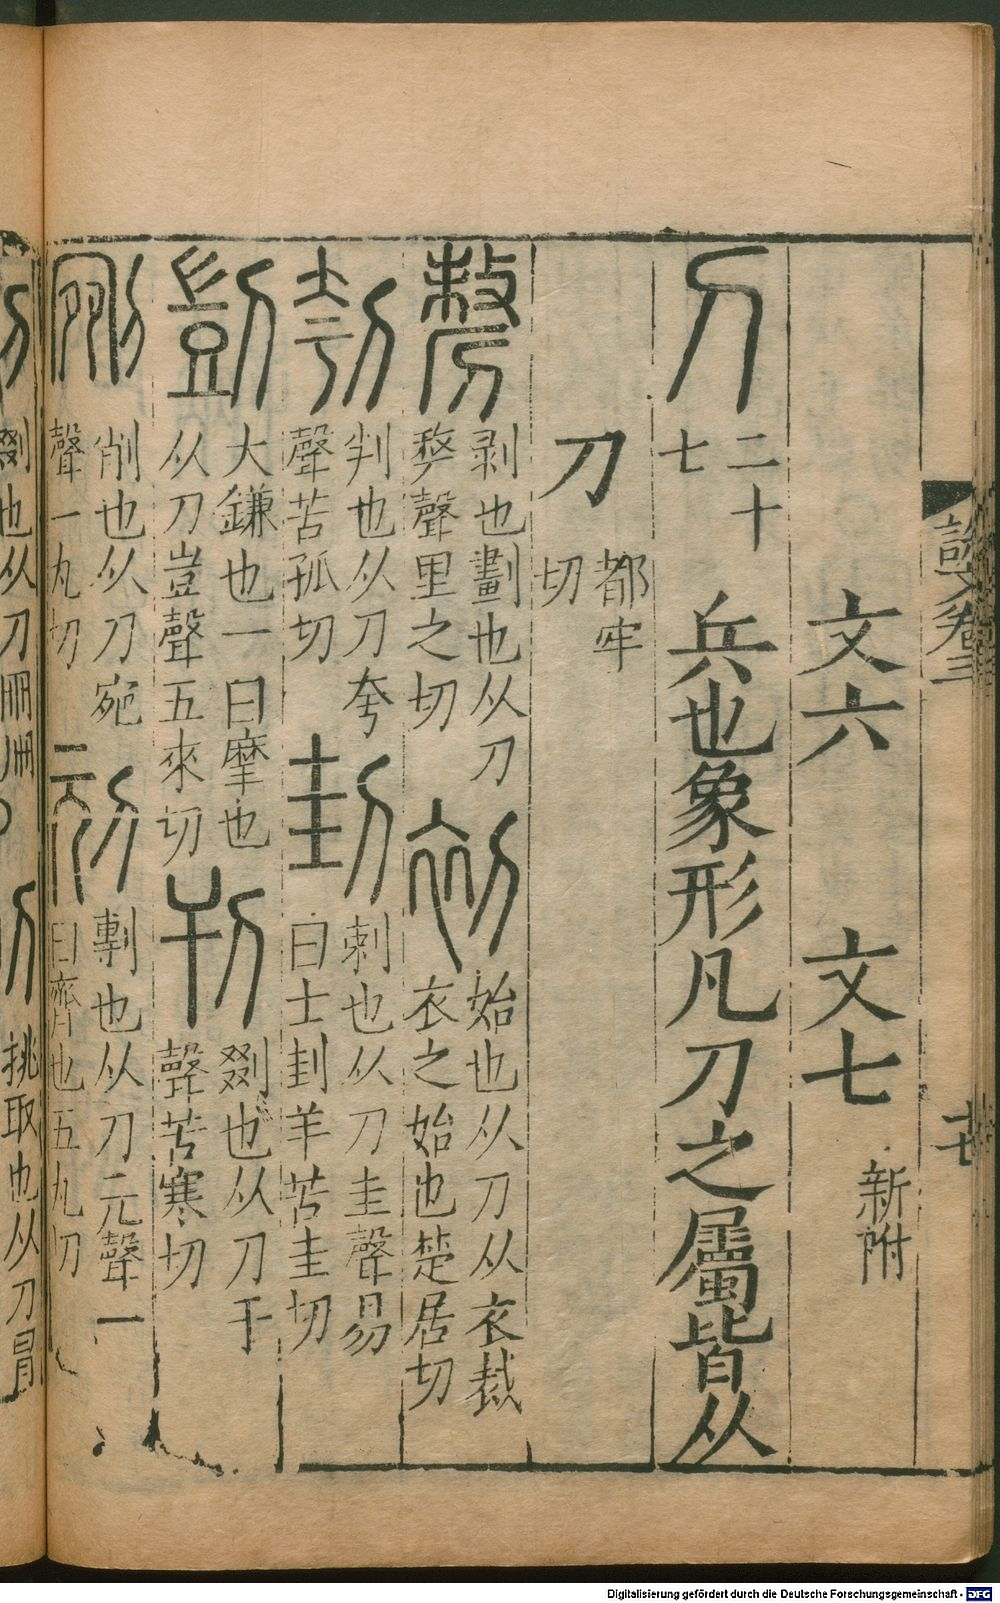 文六 文七 新附
刀 二十
七 兵也象形凡刀之屬皆从
刀 都牢
切
剺 剥也劃也从刀
㹈聲里之切 初 始也从刀从衣裁
衣之始也楚居切
刳 判也从刀夸
聲苦孤切 刲 刺也从刀圭聲易
曰士刲羊苦圭切
剴 大鎌也一曰摩也
从刀豈聲五來切 刊 剟也从刀干
聲苦寒切
剜 削也从刀宛
聲一丸切 刓 剸也从刀元聲一
曰齊也五丸切
Digitalisierung gefördert durch die Deutsche Forschungsgemeinschaft - DFG